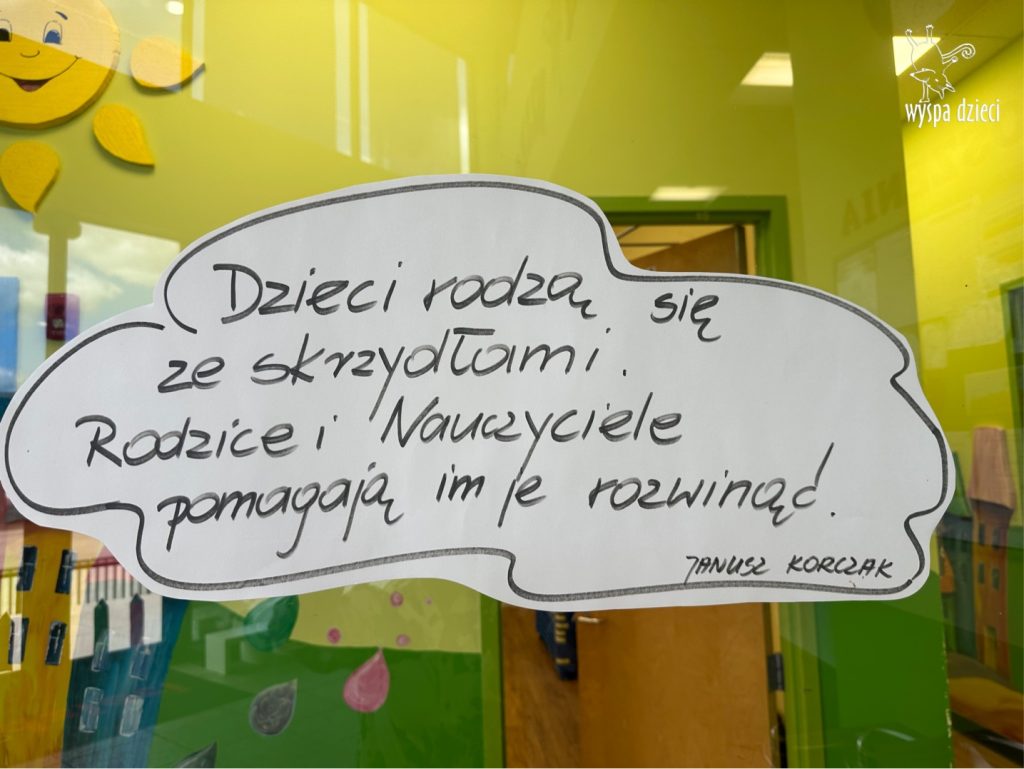 wyspa dzieci
Dzieci rodzą się
ze skrzydłami.
Rodzice i Nauczyciele
pomagają im je rozwinąć.
JANUSZ KORCZAK